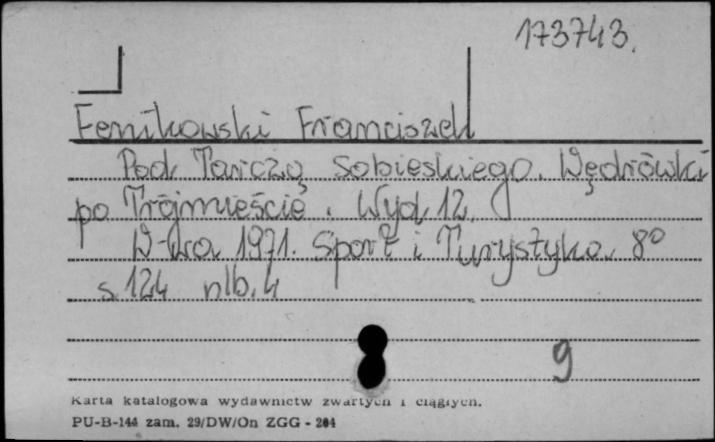 173743.
Fenikowski Franciszek
Pod Tarczą Sobieskiego. Wędrówki
po Trójmieście. Wyd. 12.
W-wa 1971. Sport i Turystyka. 8°
s. 124 nlb. 4
9
Karta katalogowa wydawnictw zwartych i ciągłych.
PU-B-144 zam. 29/DW/On ZGG - 204